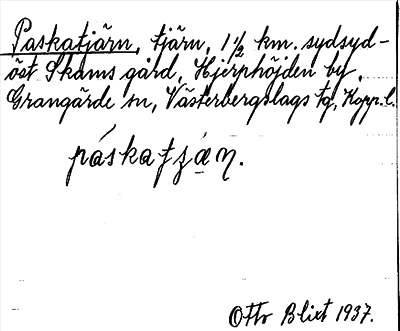 Paskatjärn, tjärn, 1 1/2 km. sydsyd-
öst Skams gård, Hjerphöjden by,
Grangärde sn, Västerbergslags tg, Kopp. l.
Otto Blixt 1937.